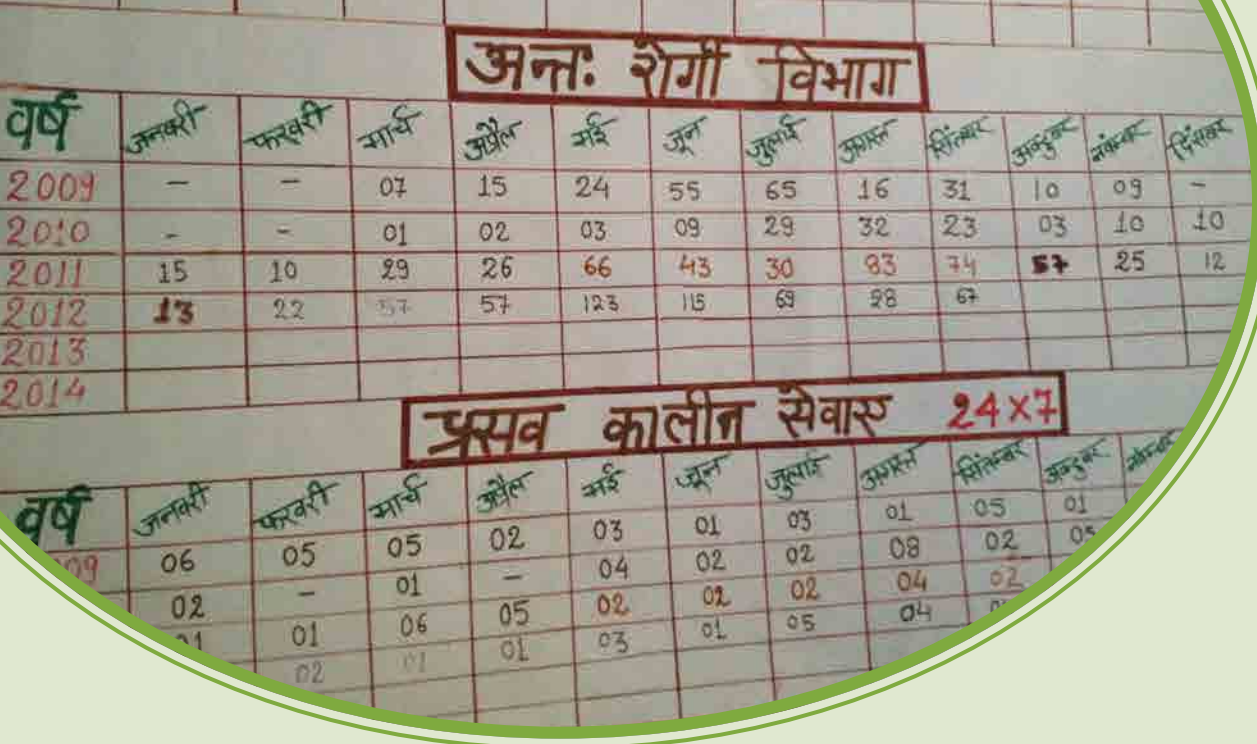 अन्तः रोगी विभाग
वर्ष जनवरी फरवरी मार्च अप्रैल मई जून जुलाई अगस्त सितंम्बर अक्टुबर नवंम्बर दिंसंबर
2009 – – 07 15 24 55 65 16 31 10 09 –
2010 – – 01 02 03 09 29 32 23 03 10 10
2011 15 10 29 26 66 43 30 83 74 57 25 12
2012 13 22 57 57 123 115 69 28 67
2013
2014
प्रसव कालीन सेवाए 24×7
वर्ष जनवरी फरवरी मार्च अप्रैल मई जून जुलाई अगस्त सितंम्बर अक्टुबर
09 06 05 05 02 03 01 03 01 05 01
02 – 01 – 04 02 02 08 02 05
01 01 06 05 02 02 02 04 02
02 01 01 03 01 05 04